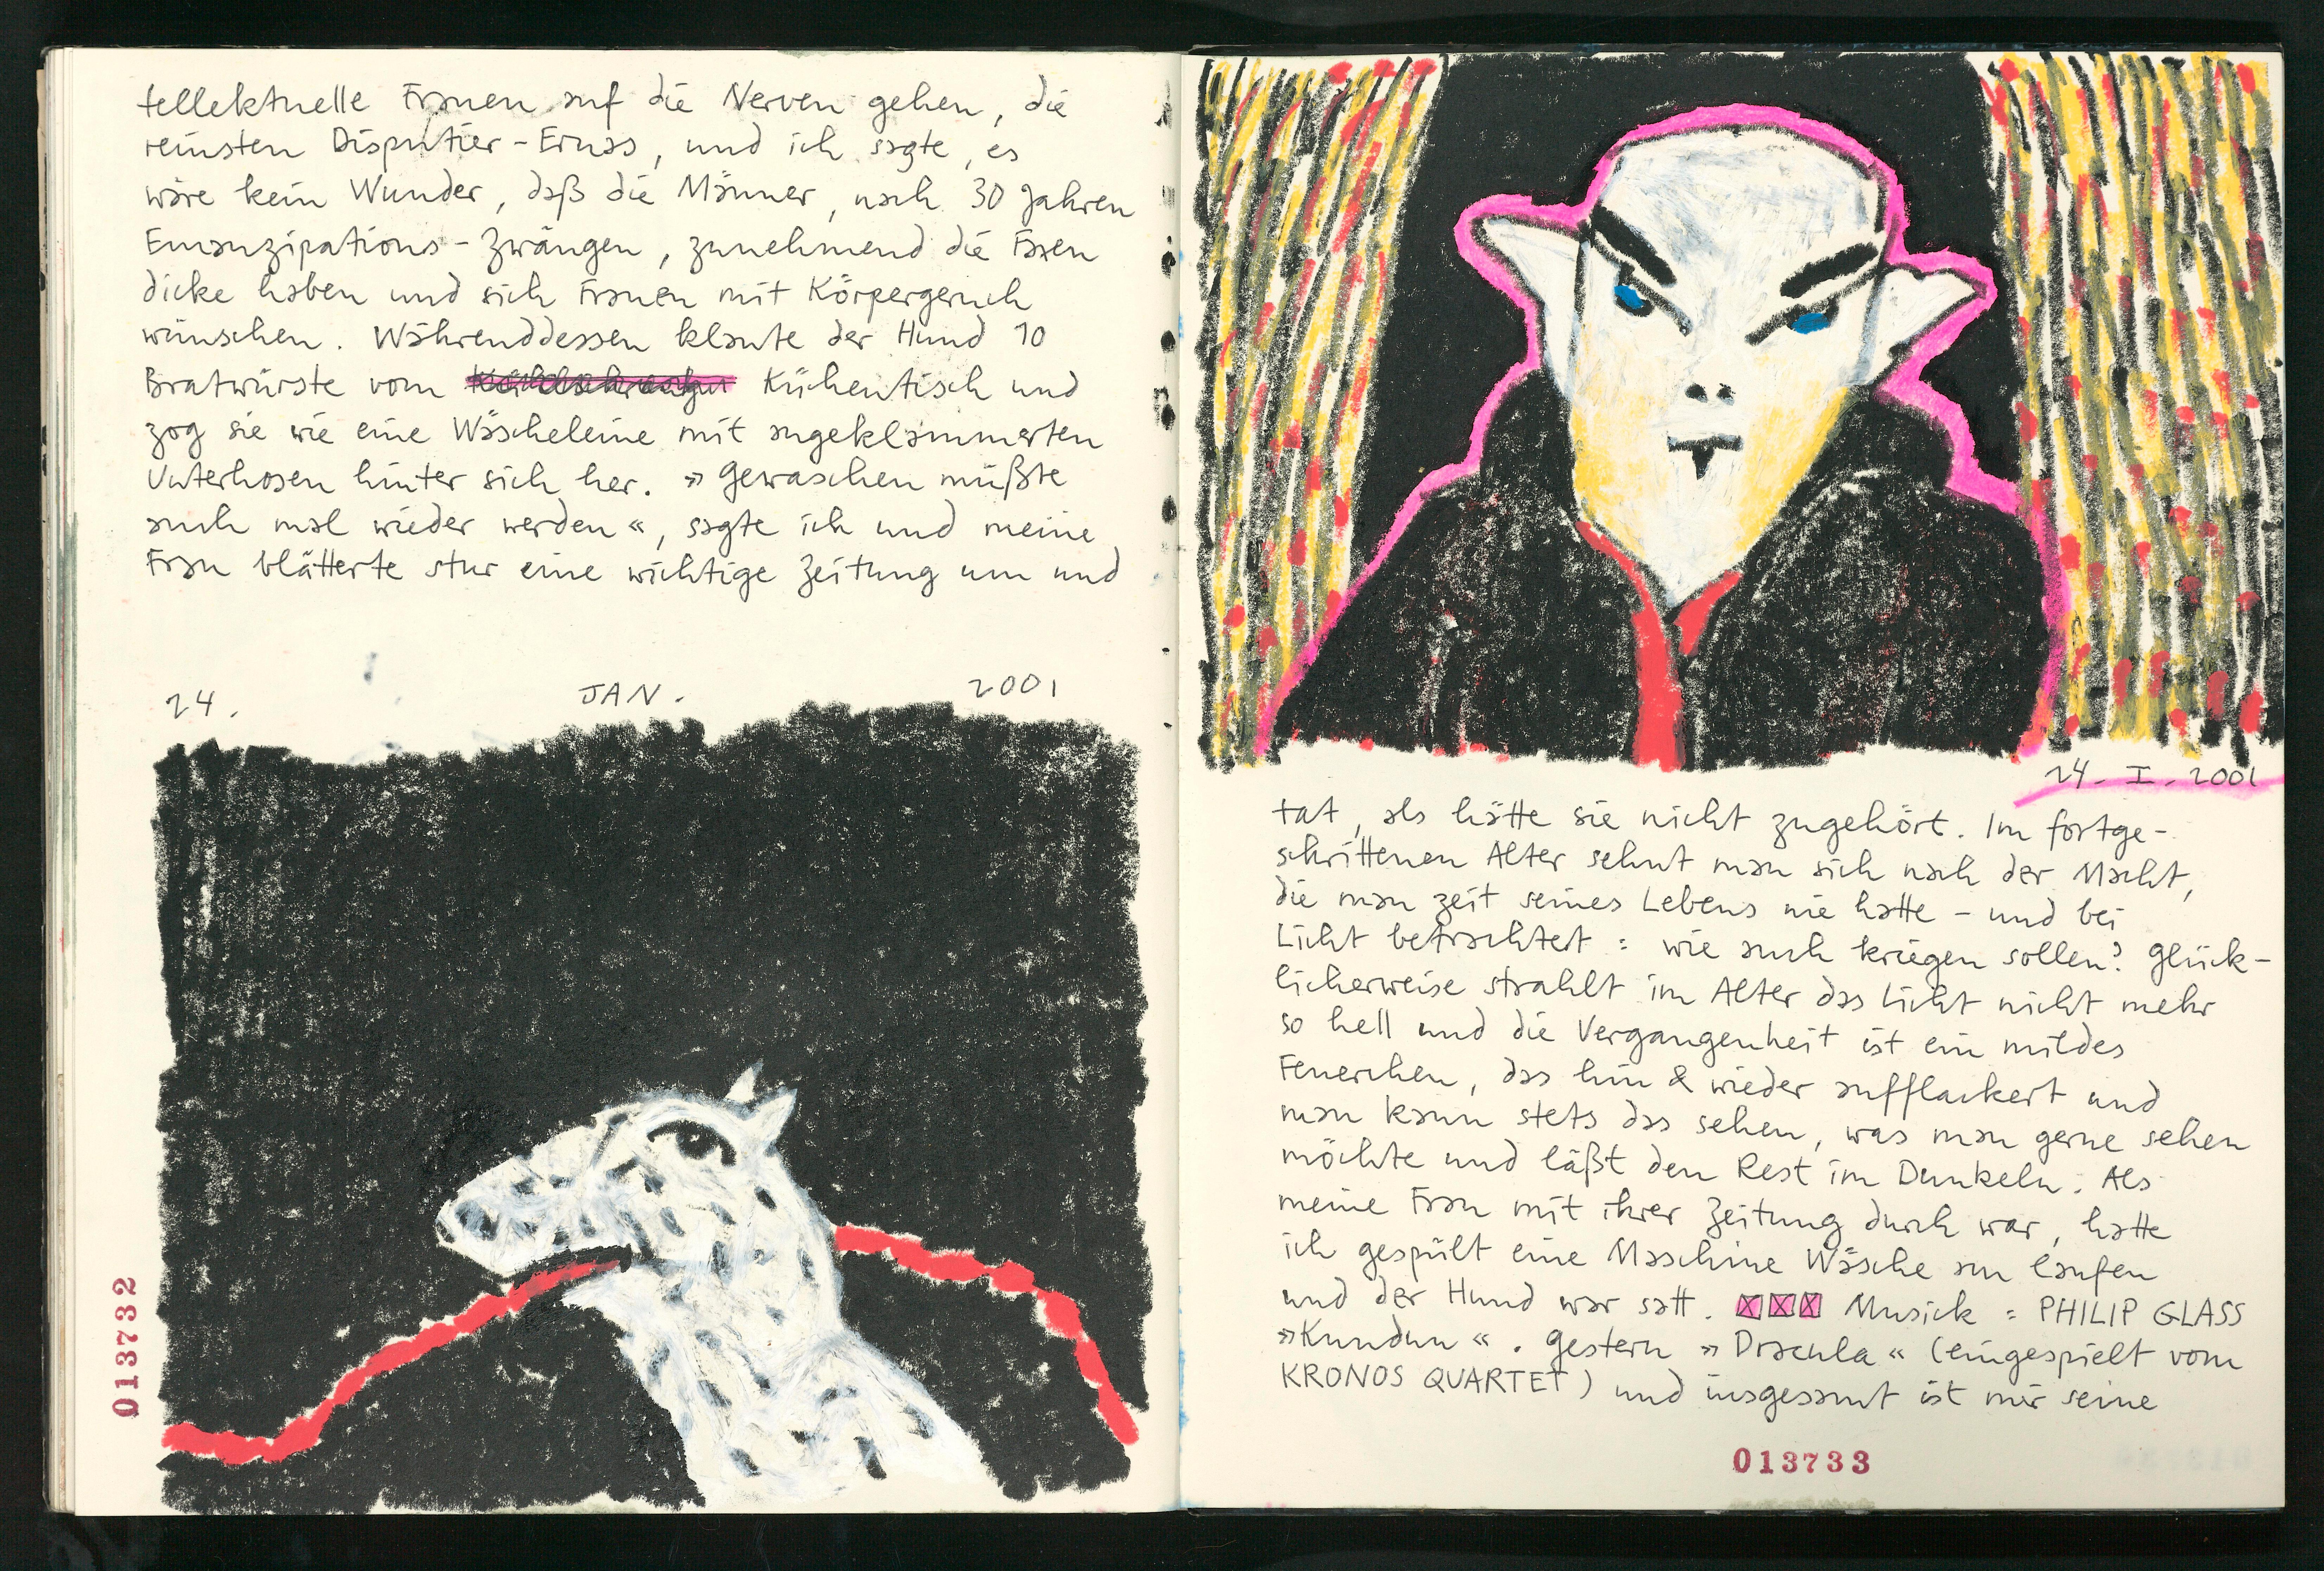 tellektuelle Frauen auf die Nerven gehen, die
reinsten Disputier-Emas, und ich sagte, es
wäre kein Wunder, daß die Männer, nach 30 Jahren
Emanzipations-Zwängen, zunehmend die Faxen
dicke haben und sich Frauen mit Körpergeruch
wünschen. Währenddessen klaute der Hund 10
Bratwürste vom Küchentisch und
zog sie wie eine Wäscheleine mit angeklammerten
Unterhosen hinter sich her. »Gewaschen müßte
auch mal wieder werden«, sagte ich und meine
Frau blätterte stur eine wichtige Zeitung um und
24. JAN. 2001
013732
24-I-2001
tat, als hätte sie nicht zugehört. Im fortge-
schrittenen Alter sehnt man sich nach der Macht,
die man zeit seines Lebens nie hatte - und bei
Licht betrachtet: wie auch kriegen sollen? Glück-
licherweise strahlt im Alter das Licht nicht mehr
so hell und die Vergangenheit ist ein mildes
Feuerchen, das hin & wieder aufflackert und
man kann stets das sehen, was man gerne sehen
möchte und läßt den Rest im Dunkeln. Als
meine Frau mit ihrer Zeitung durch war, hatte
ich gespült eine Maschine Wäsche am laufen
und der Hund war satt. Musick: PHILIP GLASS
»Kundun«. Gestern »Dracula« (eingespielt vom
KRONOS QUARTET) und insgesamt ist mir seine
013733